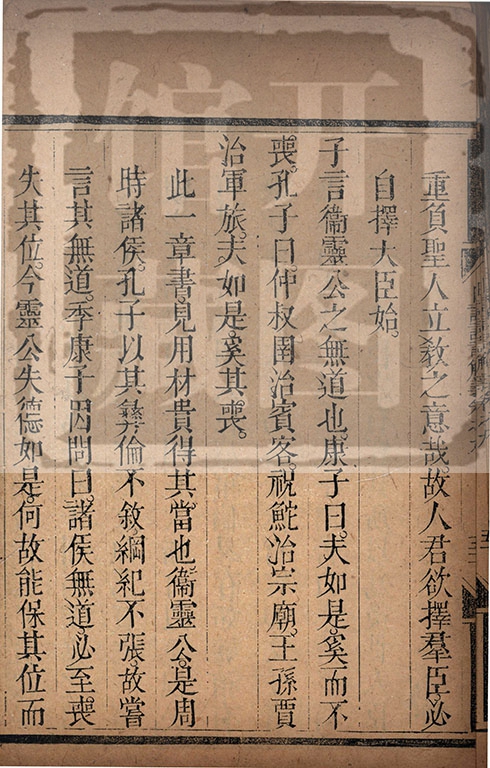 重負聖人立教之意哉故人君欲擇羣臣必
自擇大臣始。
子言衞靈公之無道也康子曰夫如是奚而不
喪。孔子曰。仲叔圉治賓客。祝鮀治宗廟。王孫賈
治軍旅。夫如是奚其喪。
此一章書。見用材貴得其當也衞靈公。是周
時諸侯。孔子以其彝倫不敘綱紀不張。故嘗
言其無道。季康子因問曰。諸侯無道必至喪
失其位。今靈公失德如是。何故能保其位而